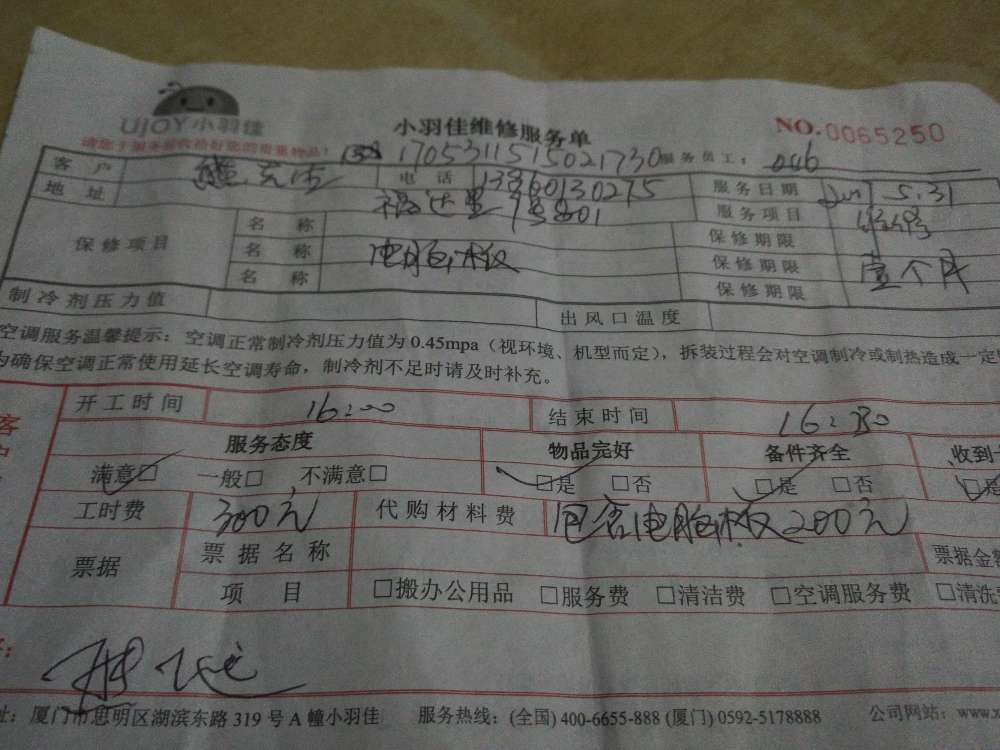 UJOY小羽佳
小羽佳维修服务单
NO.0065250
1705311515021730 服务员工: 046
客户 电话 13860130275 服务日期 5.31
地址 服务项目
保修项目 名称 保修期限
名称 电脑板 保修期限 壹个月
名称 保修期限
制冷剂压力值 出风口温度
空调服务温馨提示：空调正常制冷剂压力值为 0.45mpa（视环境、机型而定），拆装过程会对空调制冷或制热造成一定
为确保空调正常使用延长空调寿命，制冷剂不足时请及时补充。
开工时间 16:00 结束时间 16:30
服务态度 物品完好 备件齐全 收到
满意□ 一般□ 不满意□ □是 □否 □是 □否 □是
工时费 300元 代购材料费 包含电脑板200元
票据 票据名称 票据金
项目 □搬办公用品 □服务费 □清洁费 □空调服务费 □清洗
址：厦门市思明区湖滨东路 319 号 A 幢小羽佳 服务热线：(全国) 400-6655-888 (厦门) 0592-5178888 公司网站：www.x